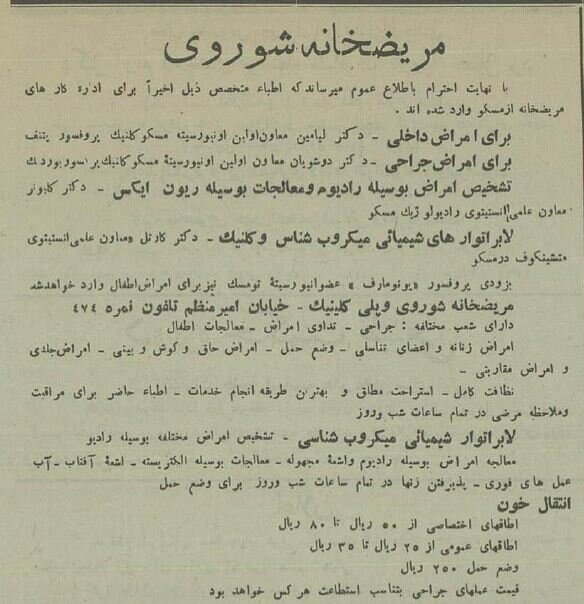 مریضخانه شوروی
با نهایت احترام باطلاع عموم میرساند که اطباء متخصص ذیل اخیراً برای اداره کار های
مریضخانه ازمسکو وارد شده اند .
برای امراض داخلی - دکتر لیامین معاون اولین اونیورسیته مسکو کلنیک پروفسور پتنف
برای امراض جراحی - دکتر دوشویان معاون اولین اونیورسیتهٔ مسکو
تشخیص امراض بوسیله رادیوم ومعالجات بوسیله ریون ایکس - دکتر
معاون علمی انستیتوی رادیولوژیک مسکو
لابراتوار های شیمیائی میکروب شناس وکلنیک - دکتر کارتل «معاون علمی انستیتوی
متشینکوف درمسکو
بزودی پروفسور «یونومارف» عضواونیورسیتهٔ تومسک نیز برای امراض اطفال وارد خواهدشد
مریضخانه شوروی وپلی کلینیک - خیابان امیرمنظم تلفون نمره ٤٧٤
دارای شعب مختلفه : جراحی - تداوی امراض - معالجات اطفال
امراض زنانه و اعضای تناسلی - وضع حمل - امراض حلق و گوش و بینی - امراض جلدی
و امراض مقاربتی -
نظافت کامل - استراحت مطلق و بهترین طریقه انجام خدمات - اطباء حاضر برای مراقبت
وملاحظه مرضی در تمام ساعات شب وروز
لابراتوار شیمیائی میکروب شناسی - تشخیص امراض مختلفه بوسیله رادیو
معالجه امراض بوسیله رادیوم واشعهٔ مجهوله - معالجات بوسیله الکتریسته - اشعهٔ آفتاب - آب
عمل های فوری - پذیرفتن زنها در تمام ساعات شب وروز برای وضع حمل
انتقال خون
اطاقهای اختصاصی از ٥٠ ریال تا ٨٠ ریال
اطاقهای عمومی از ٢٥ ریال تا ٣٥ ریال
وضع حمل ٢٥٠ ریال
قیمت عملهای جراحی بتناسب استطاعت هر کس خواهد بود